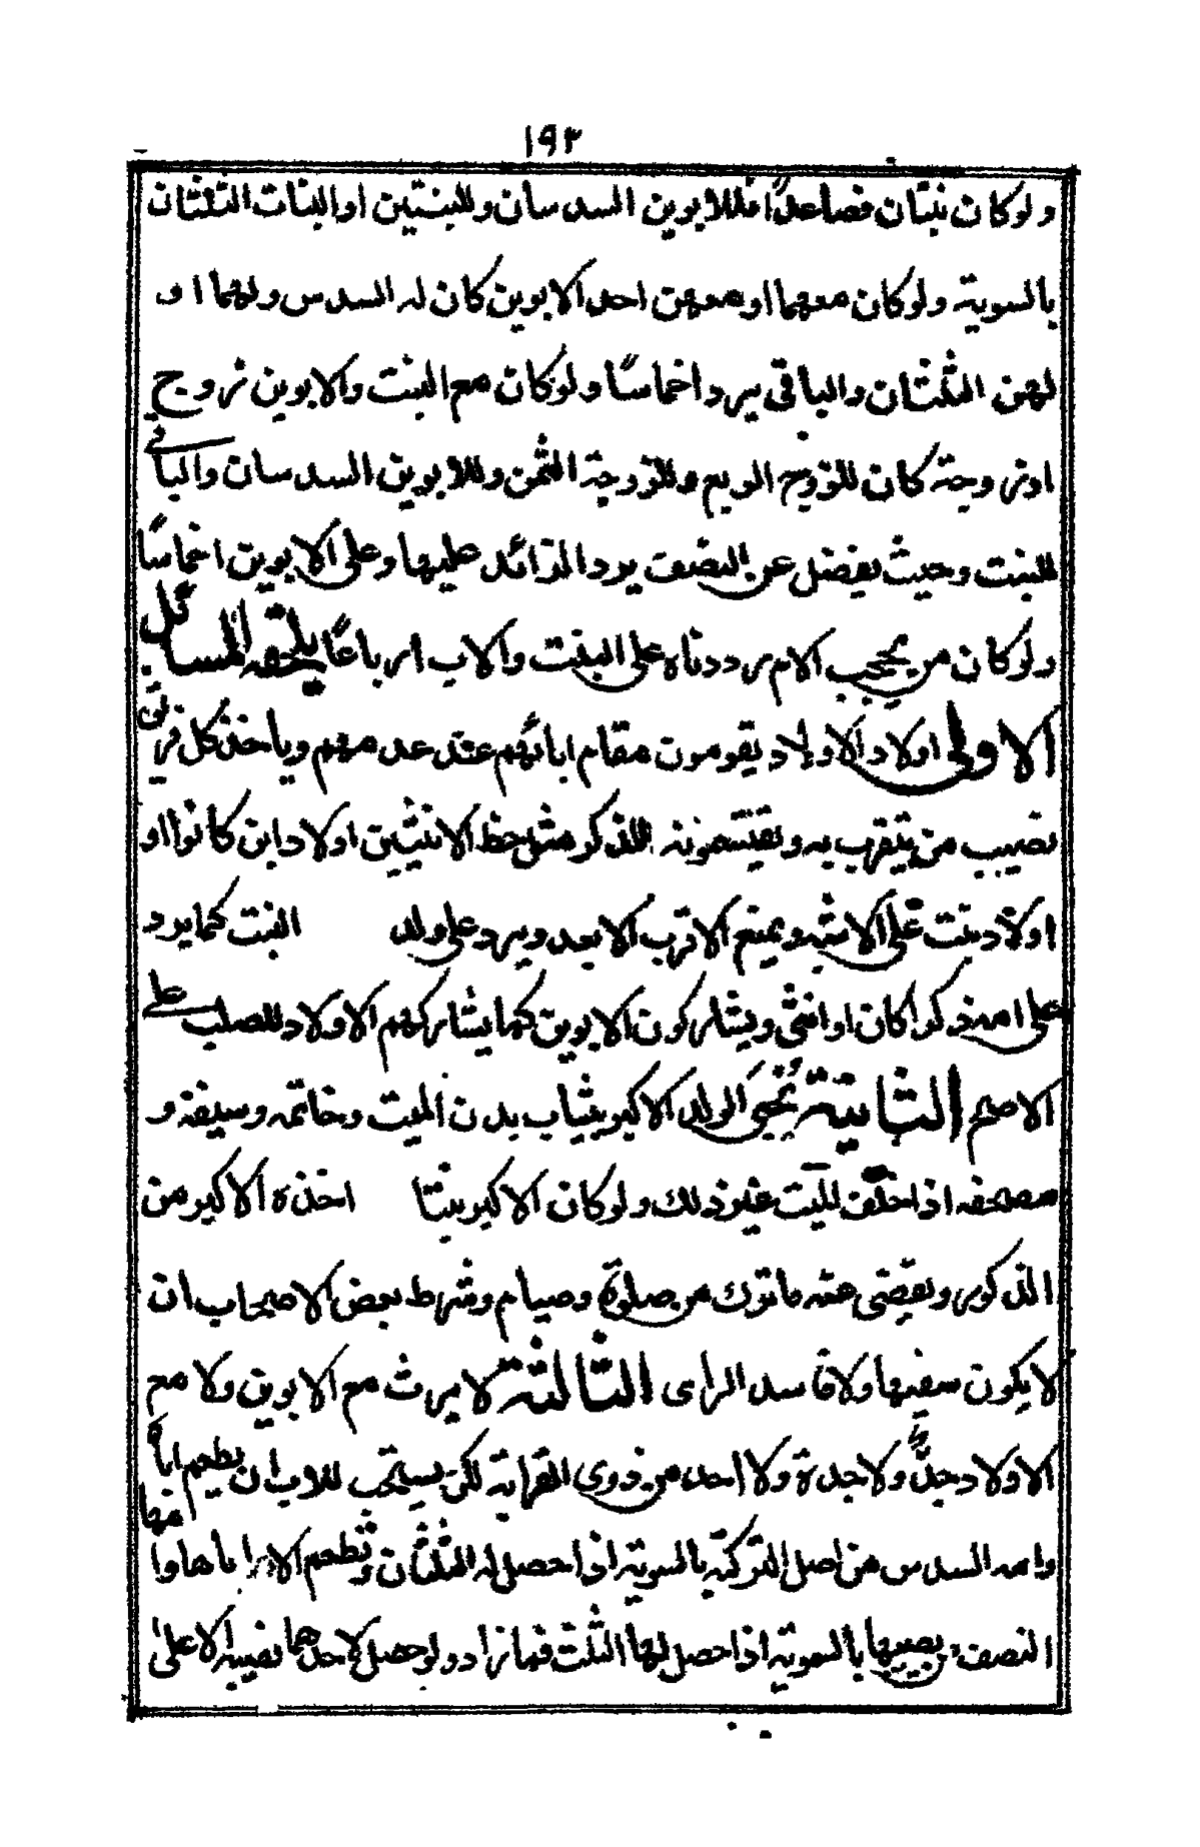 ١٩٣
ولو كان بنتان فصاعدًا فللابوين السدسان وللبنتين او البنات الثلثان
بالسوية ولو كان معهما او معهن احد الابوين كان له السدس ولهما او
لهن الثلثان والباقى يرد اخماسًا ولو كان مع البنت والابوين زوج
او زوجة كان للزوج الربع وللزوجة الثمن وللابوين السدسان والباقي
للبنت وحيث يفضل عن النصف يرد الزائد عليها وعلى الابوين اخماسًا
ولو كان من يحجب الام رددناه على البنت والاب ارباعًا يلحقه المسائل
الاولى اولاد الاولاد يقومون مقام ابائهم عند عدمهم وياخذ كل فريق
نصيب من يتقرب به ويقتسمونه للذكر مثل حظ الانثيين اولاد ابن كانوا او
اولاد بنت على الاشبه ويمنع الاقرب الابعد ويرد على ولد البنت كما يرد
على امه ذكرا كان او انثى ويشاركون الابوين كما يشاركهم الاولاد للصلب على
الاصح الثانية يُحبى الولد الاكبر بثياب بدن الميت وخاتمه وسيفه و
مصحفه اذا خلّف الميّت غير ذلك ولو كان الاكبر بنتا اخذه الاكبر من
الذكور ويقضى عنه ما ترك من صلوة وصيام وشرط بعض الاصحاب ان
لا يكون سفيها ولا فاسد الراى الثالثة لا يرث مع الابوين ولا مع
الاولاد جدٌّ ولا جدة ولا احد من ذوى القرابة لكن يستحب للاب ان يطعم اباه
وامه السدس من اصل التركة بالسوية اذا حصل له الثلثان وتطعم الام اباها وامها
النصف من نصيبها بالسوية اذا حصل لها الثلث فما زاد ولو حصل لاحدهما نصيبه الاعلى